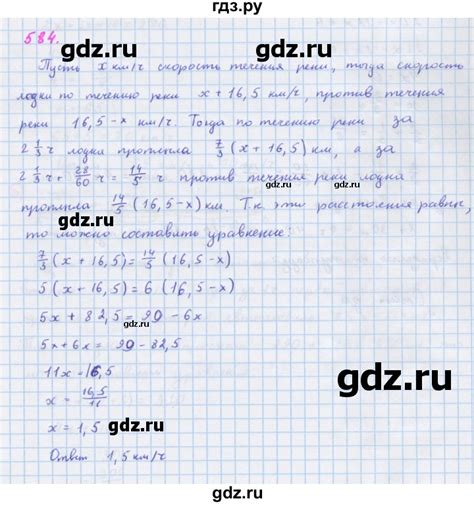 гдз.ру
584.
gdz.ru
gdz.ru
Пусть x км/ч скорость течения реки, тогда скорость
лодки по течению реки x + 16,5 км/ч, против течения
реки 16,5 - x км/ч. Тогда по течению реки за
2 1/3 ч лодка проплыла 7/3 (x + 16,5) км, а за
2 1/3 ч + 28/60 ч = 14/5 ч против течения реки лодка
проплыла 14/5 (16,5 - x) км. Т.к. эти расстояния равны,
то можно составить уравнение:
7/3 (x + 16,5) = 14/5 (16,5 - x)
gdz.ru
5 (x + 16,5) = 6 (16,5 - x)
5x + 82,5 = 99 - 6x
gdz.ru
5x + 6x = 99 - 82,5
11x = 16,5
gdz.ru
x = 16,5/11
x = 1,5
gdz.ru
Ответ 1,5 км/ч
gdz.ru